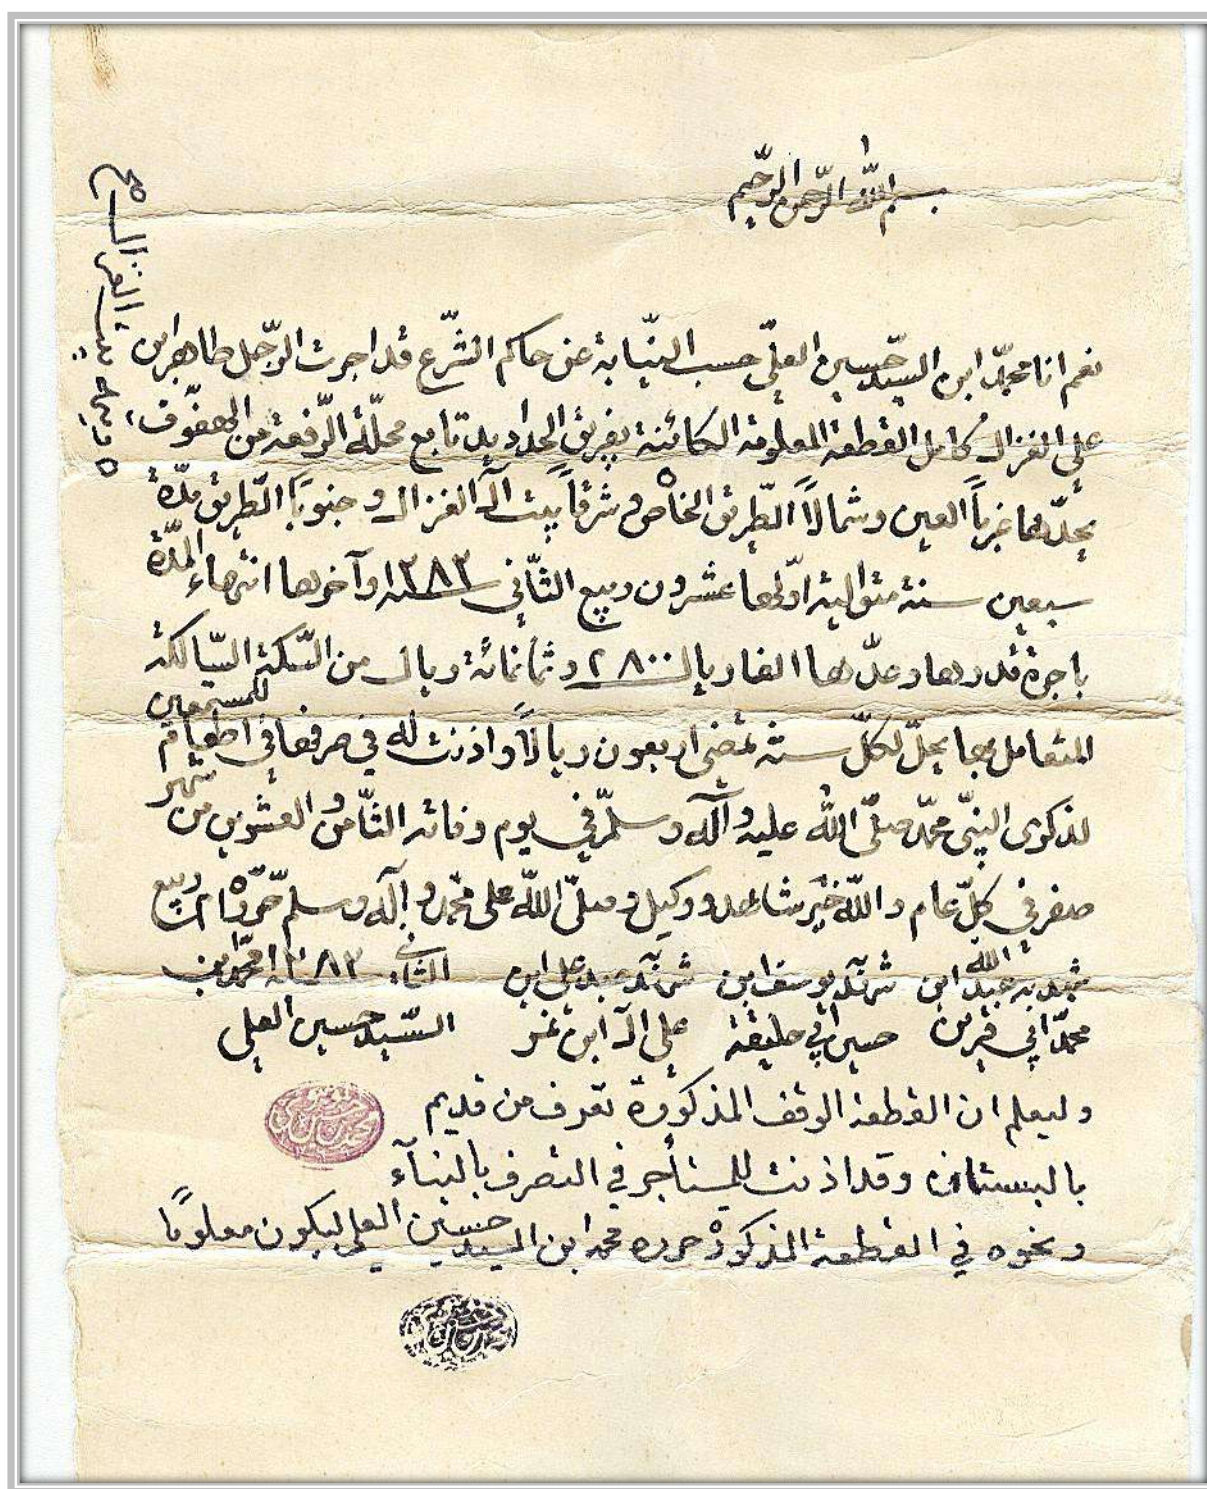 بسم الله الرحمن الرحيم
نعم انا محمّد ابن السيد حسين العلي حسب النيّابة عن حاكم الشّرع قد اجرت الرّجل طاهر ابن
علي الغزال كامل القطعة المعلومة الكائنة بفريق الحداديد تابع محلّة الرّفعة من الهفوف
يحدّها غرباً العين وشمالاً الطّريق الخاص وشرقاً بيت آل الغزال وجنوبًا الطّريق مدّة
سبعين سنة متوالية اوّلها عشرون ربيع الثّاني سنة ١٣٨٣ وآخرها انتهاء المدّة
باجرة قدرها وعدّها الفا ريال ٢٨٠٠ وثمانمائة ريال من السّكة السّالكة
المتعامل بها يحلّ لكلّ سنة تمضي اربعون ريالاً واذنت له في صرفها في اطعام للمستمعين
لذكرى النبيّ محمّد صلّى الله عليه وآله وسلّم في يوم وفاته الثّامن والعشرين من شهر
صفر في كلّ عام والله خير شاهد ووكيل وصلّى الله على محمّد وآله وسلم حرّر ٢٠ ربيع
شهد به عبد الله ابن شهد يوسف ابن شهد عبد علي ابن الثاني ١٣٨٣ محمّد ابن
محمّد ابي قرين حسين ابي حليقة علي آل ابن نمر السّيد حسين العلي
وليعلم ان القطعة الوقف المذكورة تعرف من قديم
بالبستان وقد اذنت للمستأجر في التصرف بالبنآء
ونحوه في القطعة المذكورة حرره محمد ابن السيد حسين العلي ليكون معلومًا